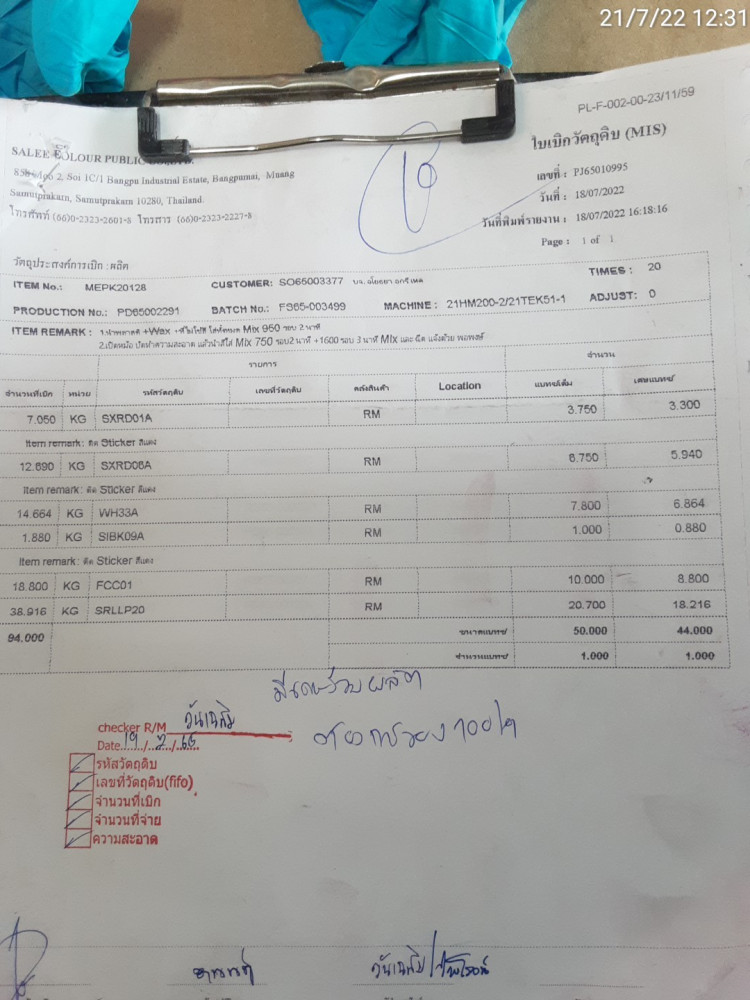 21/7/22 12:31
PL-F-002-00-23/11/59
ใบเบิกวัตถุดิบ (MIS)
SALEE COLOUR PUBLIC
2, Soi 1C/1 Bangpu Industrial Estate, Bangpumai, Muang
Samutprakarn, Samutprakarn 10280, Thailand.
โทรศัพท์ (66)0-2323-2601-8 โทรสาร (66)0-2323-2227-8
เลขที่ : PJ65010995
วันที่ : 18/07/2022
วันที่พิมพ์รายงาน : 18/07/2022 16:18:16
Page : 1 of 1
วัตถุประสงค์การเบิก : ผลิต
ITEM No.: MEPK20128 CUSTOMER: SO65003377 TIMES : 20
PRODUCTION No.: PD65002291 BATCH No.: FS65-003499 MACHINE : 21HM200-2/21TEK51-1 ADJUST: 0
ITEM REMARK : +Wax Mix 950 รอบ 2 นาที
Mix 750 รอบ2 นาที +1600 รอบ 3 นาที Mix และ
รายการ จำนวน
จำนวนที่เบิก หน่วย รหัสวัตถุดิบ เลขที่วัตถุดิบ คลังสินค้า Location แบทช์เต็ม เศษแบทช์
7.050 KG SXRD01A RM 3.750 3.300
Item remark: ติด Sticker สีแดง
12.690 KG SXRD06A RM 6.750 5.940
Item remark: ติด Sticker สีแดง
14.664 KG WH33A RM 7.800 6.864
1.880 KG SIBK09A RM 1.000 0.880
Item remark: ติด Sticker สีแดง
18.800 KG FCC01 RM 10.000 8.800
38.916 KG SRLLP20 RM 20.700 18.216
94.000 ขนาดแบทช์ 50.000 44.000
จำนวนแบทช์ 1.000 1.000
checker R/M วันเฉลิม
Date 19
รหัสวัตถุดิบ
เลขที่วัตถุดิบ(fifo)
จำนวนที่เบิก
จำนวนที่จ่าย
ความสะอาด
วันเฉลิม